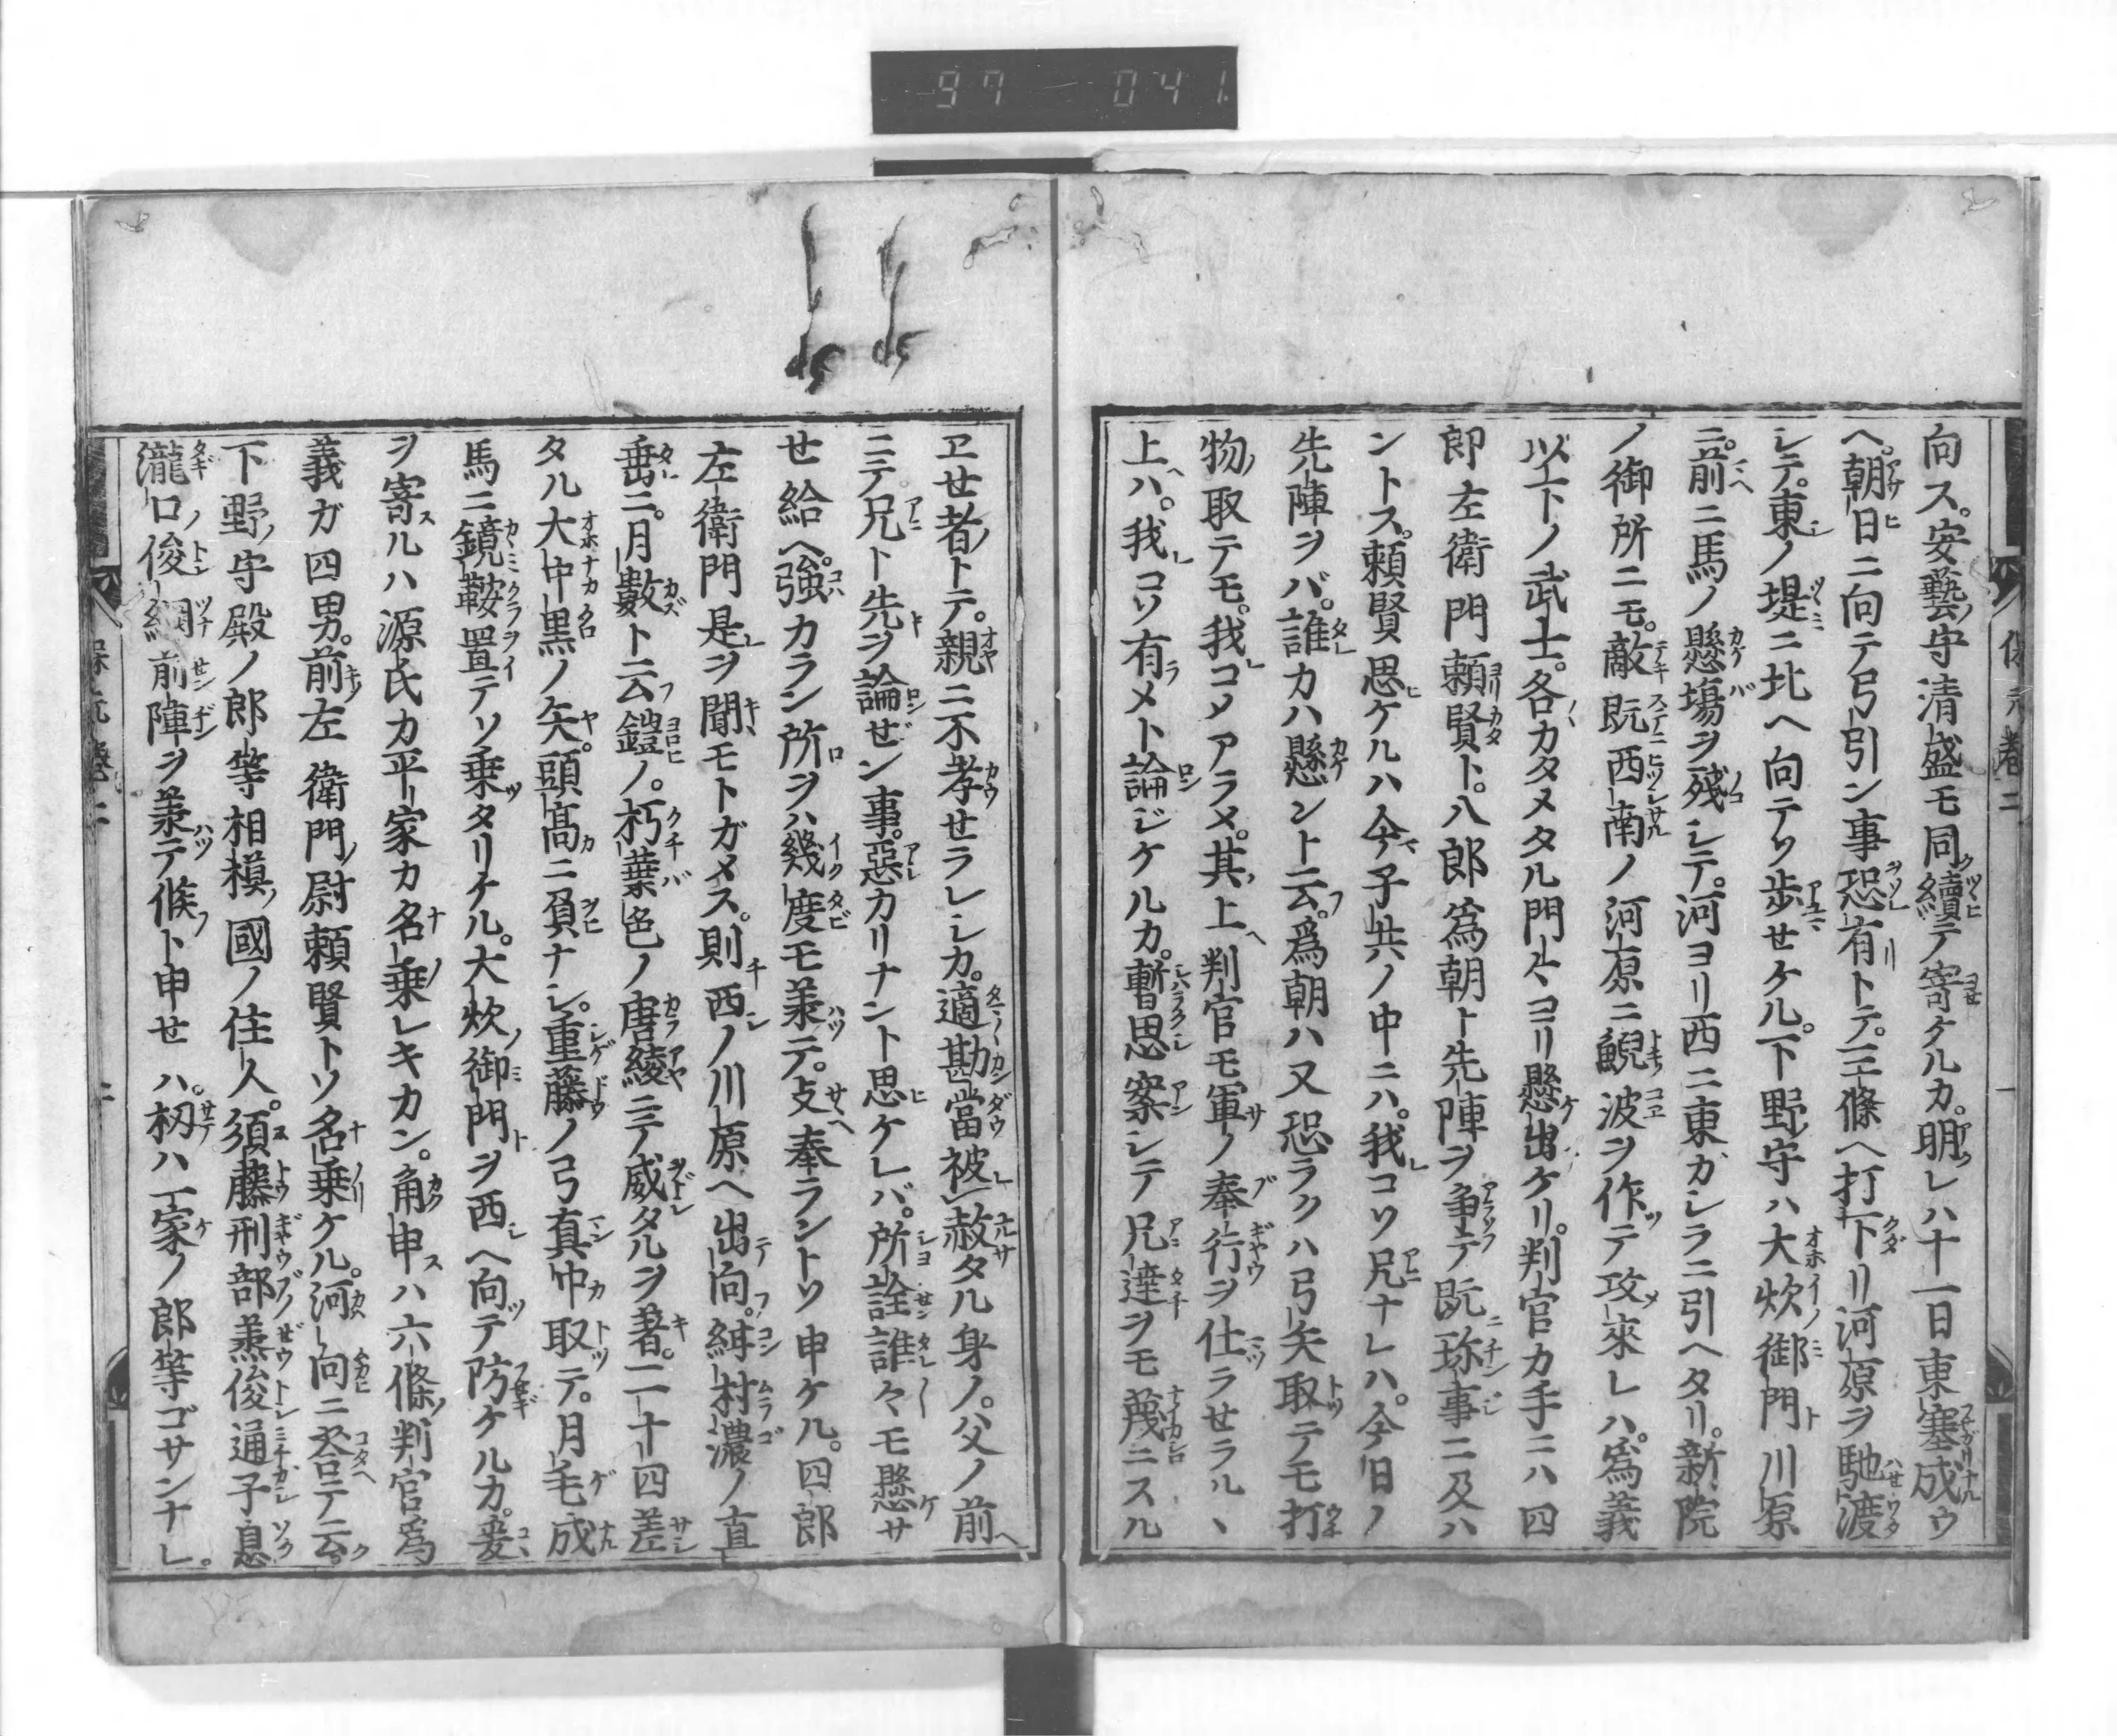 97 041
保元巻二
向ス。安藝守清盛モ同續テ寄ケルカ。明レハ十一日東塞成ウ
ヘ。朝日ニ向テ弓引ン事恐有トテ。三條ヘ打下リ河原ヲ馳渡
シテ。東ノ堤ニ北ヘ向テソ歩せケル。下野守ハ大炊御門川原
ニ。前ニ馬ノ懸塲ヲ殘シテ。河ヨリ西ニ東ガシラニ引ヘタリ。新院
ノ御所ニモ。敵既西南ノ河原ニ鯢波ヲ作テ攻來レハ。爲義
以下ノ武士。各カタメタル門々ヨリ懸出ケリ。判官カ手ニハ四
郎左衛門頼賢ト。八郎爲朝ト先陣ヲ爭テ既珎事ニ及ハ
ントス。頼賢思ケルハ今子共ノ中ニハ。我コソ兄ナレハ。今日ノ
先陣ヲバ。誰カハ懸ント云。爲朝ハ又恐ラクハ弓矢取テモ打
物取テモ。我コソアラメ。其上判官モ軍ノ奉行ヲ仕ラせラルヽ
上ハ。我コソ有メト論ジケルカ。暫思案シテ兄達ヲモ蔑ニスル
ヱせ者トテ。親ニ不孝せラレシカ。適勘當被赦タル身ノ。父ノ前
ニテ兄ト先ヲ論ぜン事。惡カリナント思ケレバ。所詮誰々モ懸サ
せ給ヘ。強カラン所ヲハ幾度モ羕テ。支奉ラントソ申ケル。四郎
左衛門是ヲ聞モトガメス。則西ノ川原ヘ出向。紺村濃ノ直
垂ニ。月數ト云鎧ノ。朽葉色ノ唐綾ニテ威タルヲ著。二十四差
タル大中黒ノ矢。頭髙ニ負ナシ。重藤ノ弓真中取テ。月毛成
馬ニ鏡鞍置テソ乗タリケル。大炊御門ヲ西ヘ向テ防ケルカ。爰
ヲ寄ルハ源氏カ平家カ名乗レキカン。角申ハ六條判官爲
義ガ四男。前左衛門尉頼賢トソ名乗ケル。河向ニ答テ云。
下野守殿ノ郎等相模國ノ住人。須藤刑部烝俊通子息
瀧口俊綱前陣ヲ羕テ候ト申せハ。扨ハ一家ノ郎等ゴサンナレ。